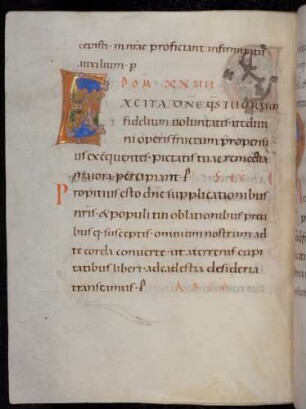 cepisti· in nr̄ae proficiant infirmitatis
auxilium· p
DOM· XXIIII
EXCITA DN̄E QS TUORUM
fidelium voluntates· ut divi
ni operis fructum propensi
us exequentes· pietatis tuae remedia
maiora percipiant· P
Propitius esto dn̄e supplicationibus
nr̄is· & populi tui oblationibus preci
bus q· susceptis· omnium nostrum ad
te corda converte· ut a terrenis cupi
tatibus liberi· ad caelestia desideria
transeamus· P